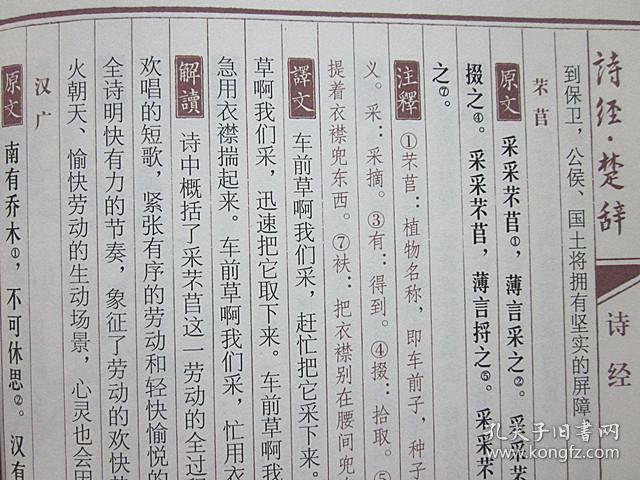 诗经·楚辞
诗经
到保卫，公侯、国土将拥有坚实的屏障
芣苢
原文 采采芣苢①，薄言采之②。采采芣
掇之④。采采芣苢，薄言捋之⑤。采采芣
之⑦。
注釋 ①芣苢：植物名称，即车前子，种子
义。采：采摘。③有：得到。④掇：拾取。⑤
提着衣襟兜东西。⑦袺：把衣襟别在腰间兜
譯文 车前草啊我们采，赶忙把它采下来。
草啊我们采，迅速把它取下来。车前草啊我
急用衣襟揣起来。车前草啊我们采，忙用衣
解讀 诗中概括了采芣苢这一劳动的全过程
欢唱的短歌，紧张有序的劳动和轻快愉悦的
全诗明快有力的节奏，象征了劳动的欢快
火朝天、愉快劳动的生动场景，心灵也会
汉广
原文 南有乔木①，不可休思②。汉有
孔夫子旧书网
kongfz.com